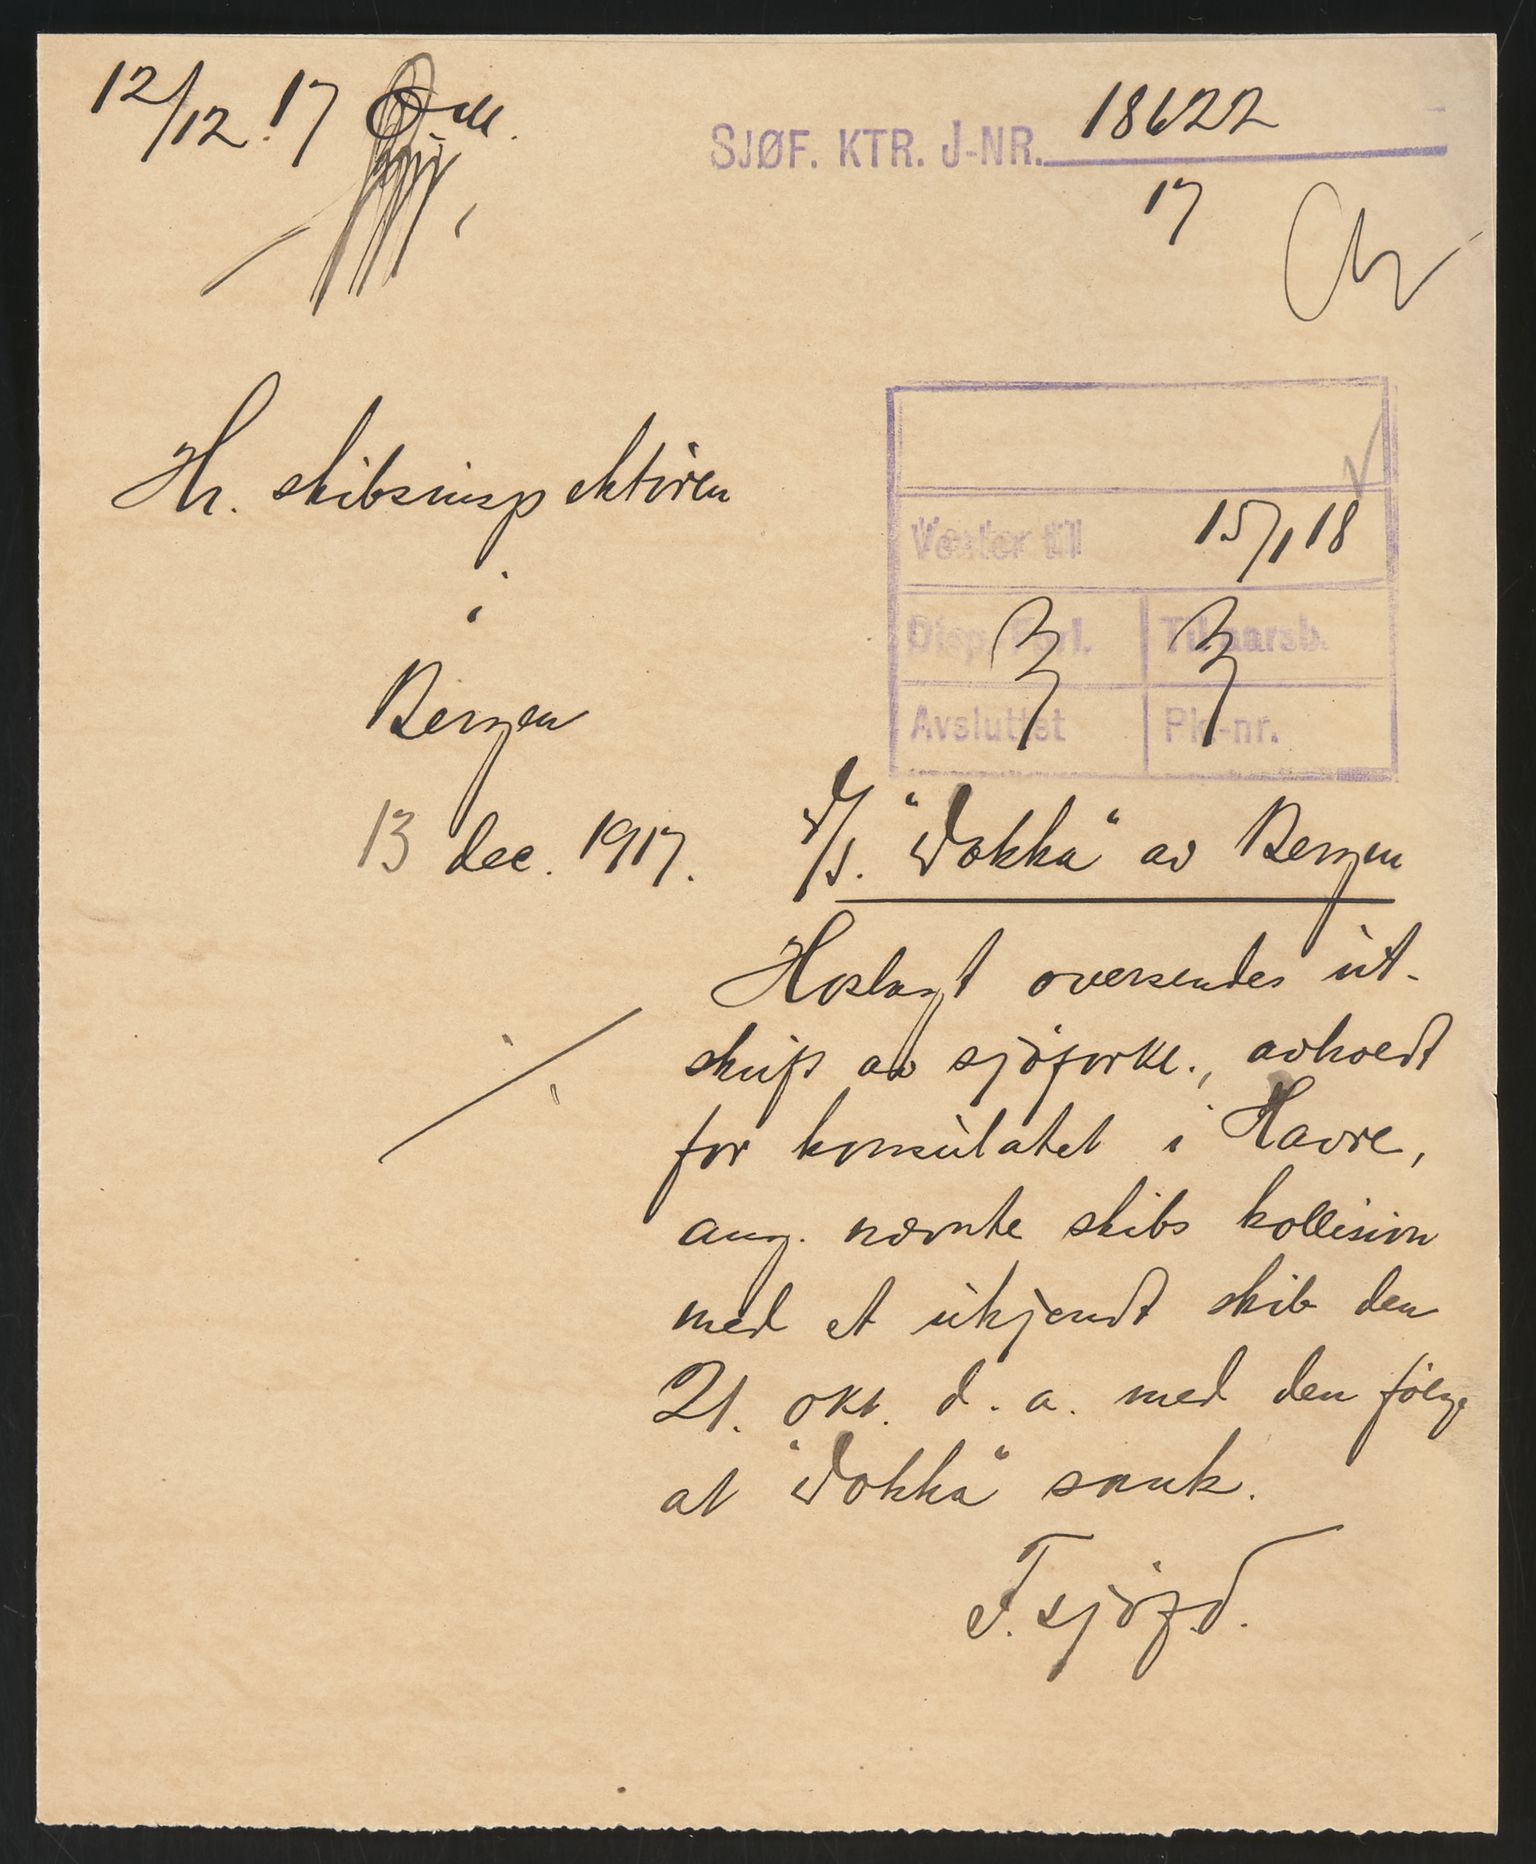 12/12. 17
SJØF. KTR. J-NR. 18622
17
Hr. skibsinspektøren
i
Bergen
13 dec. 1917.
Venter til 15/1 18
Disp. Forl. Til aarsb.
Avsluttet Pk.-nr.
D/S. "Dokka" av Bergen
Hoslagt oversendes ut-
skrift av sjøforkl., avholdt
for konsulatet i Havre,
ang. nævnte skibs kollision
med et ukjendt skib den
21. okt. d. a. med den følge
at "Dokka" sank.
F. sjøfd.